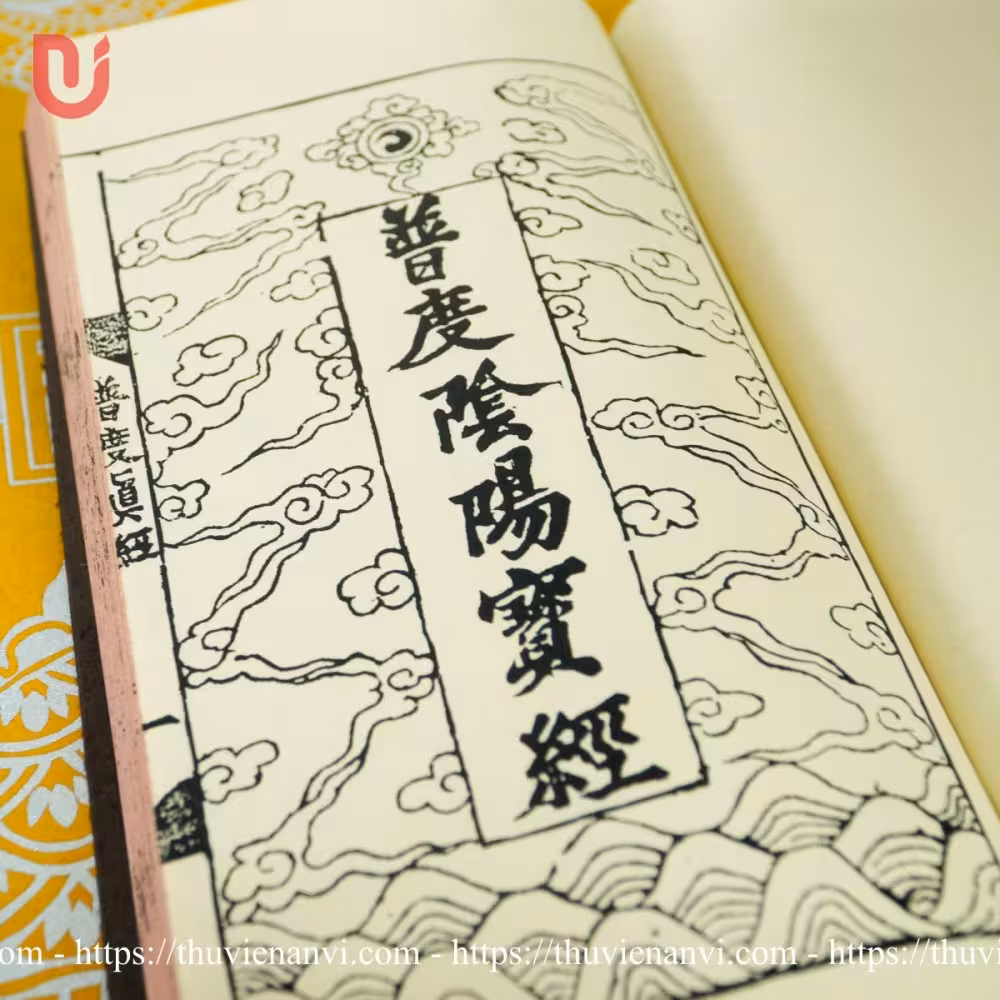 普度陰陽寶經
普度真經
一
om - https://thuvienanvi.com - https://thuvienanvi.com - https://thuvi